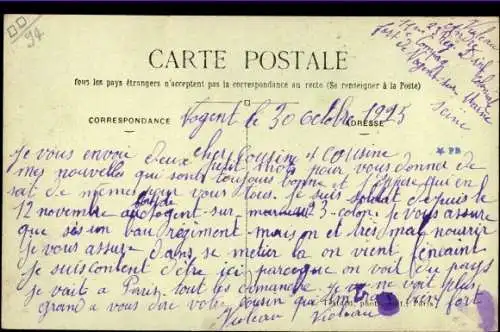 94
CARTE POSTALE
Tous les pays étrangers n'acceptent pas la correspondance au recto (Se renseigner à la Poste)
fort de Nogent-sur-Marne
Seine
CORRESPONDANCE
ADRESSE
Nogent le 30 octobre 1925
cher Cousine et COUSINE
je vous envoi deux petit mots pour vous donné de
mes nouvelles qui sont toujours bonne et j'espère qu'il en
sat de même pour vous tous. Je suis soldat depuis le
12 novembre Nogent-sur-marne 23 colon. je vous assure
que ses un bau régiment mais on et très mal nourir
je vous assure dans se metier la on vient féniant
je suis content d'être ici parceque on voit du pays
je vait a Paris tout les dimanche je ne voit plus
grand a vous dire votre cousin qui vous bien fort
Violeau Violeau